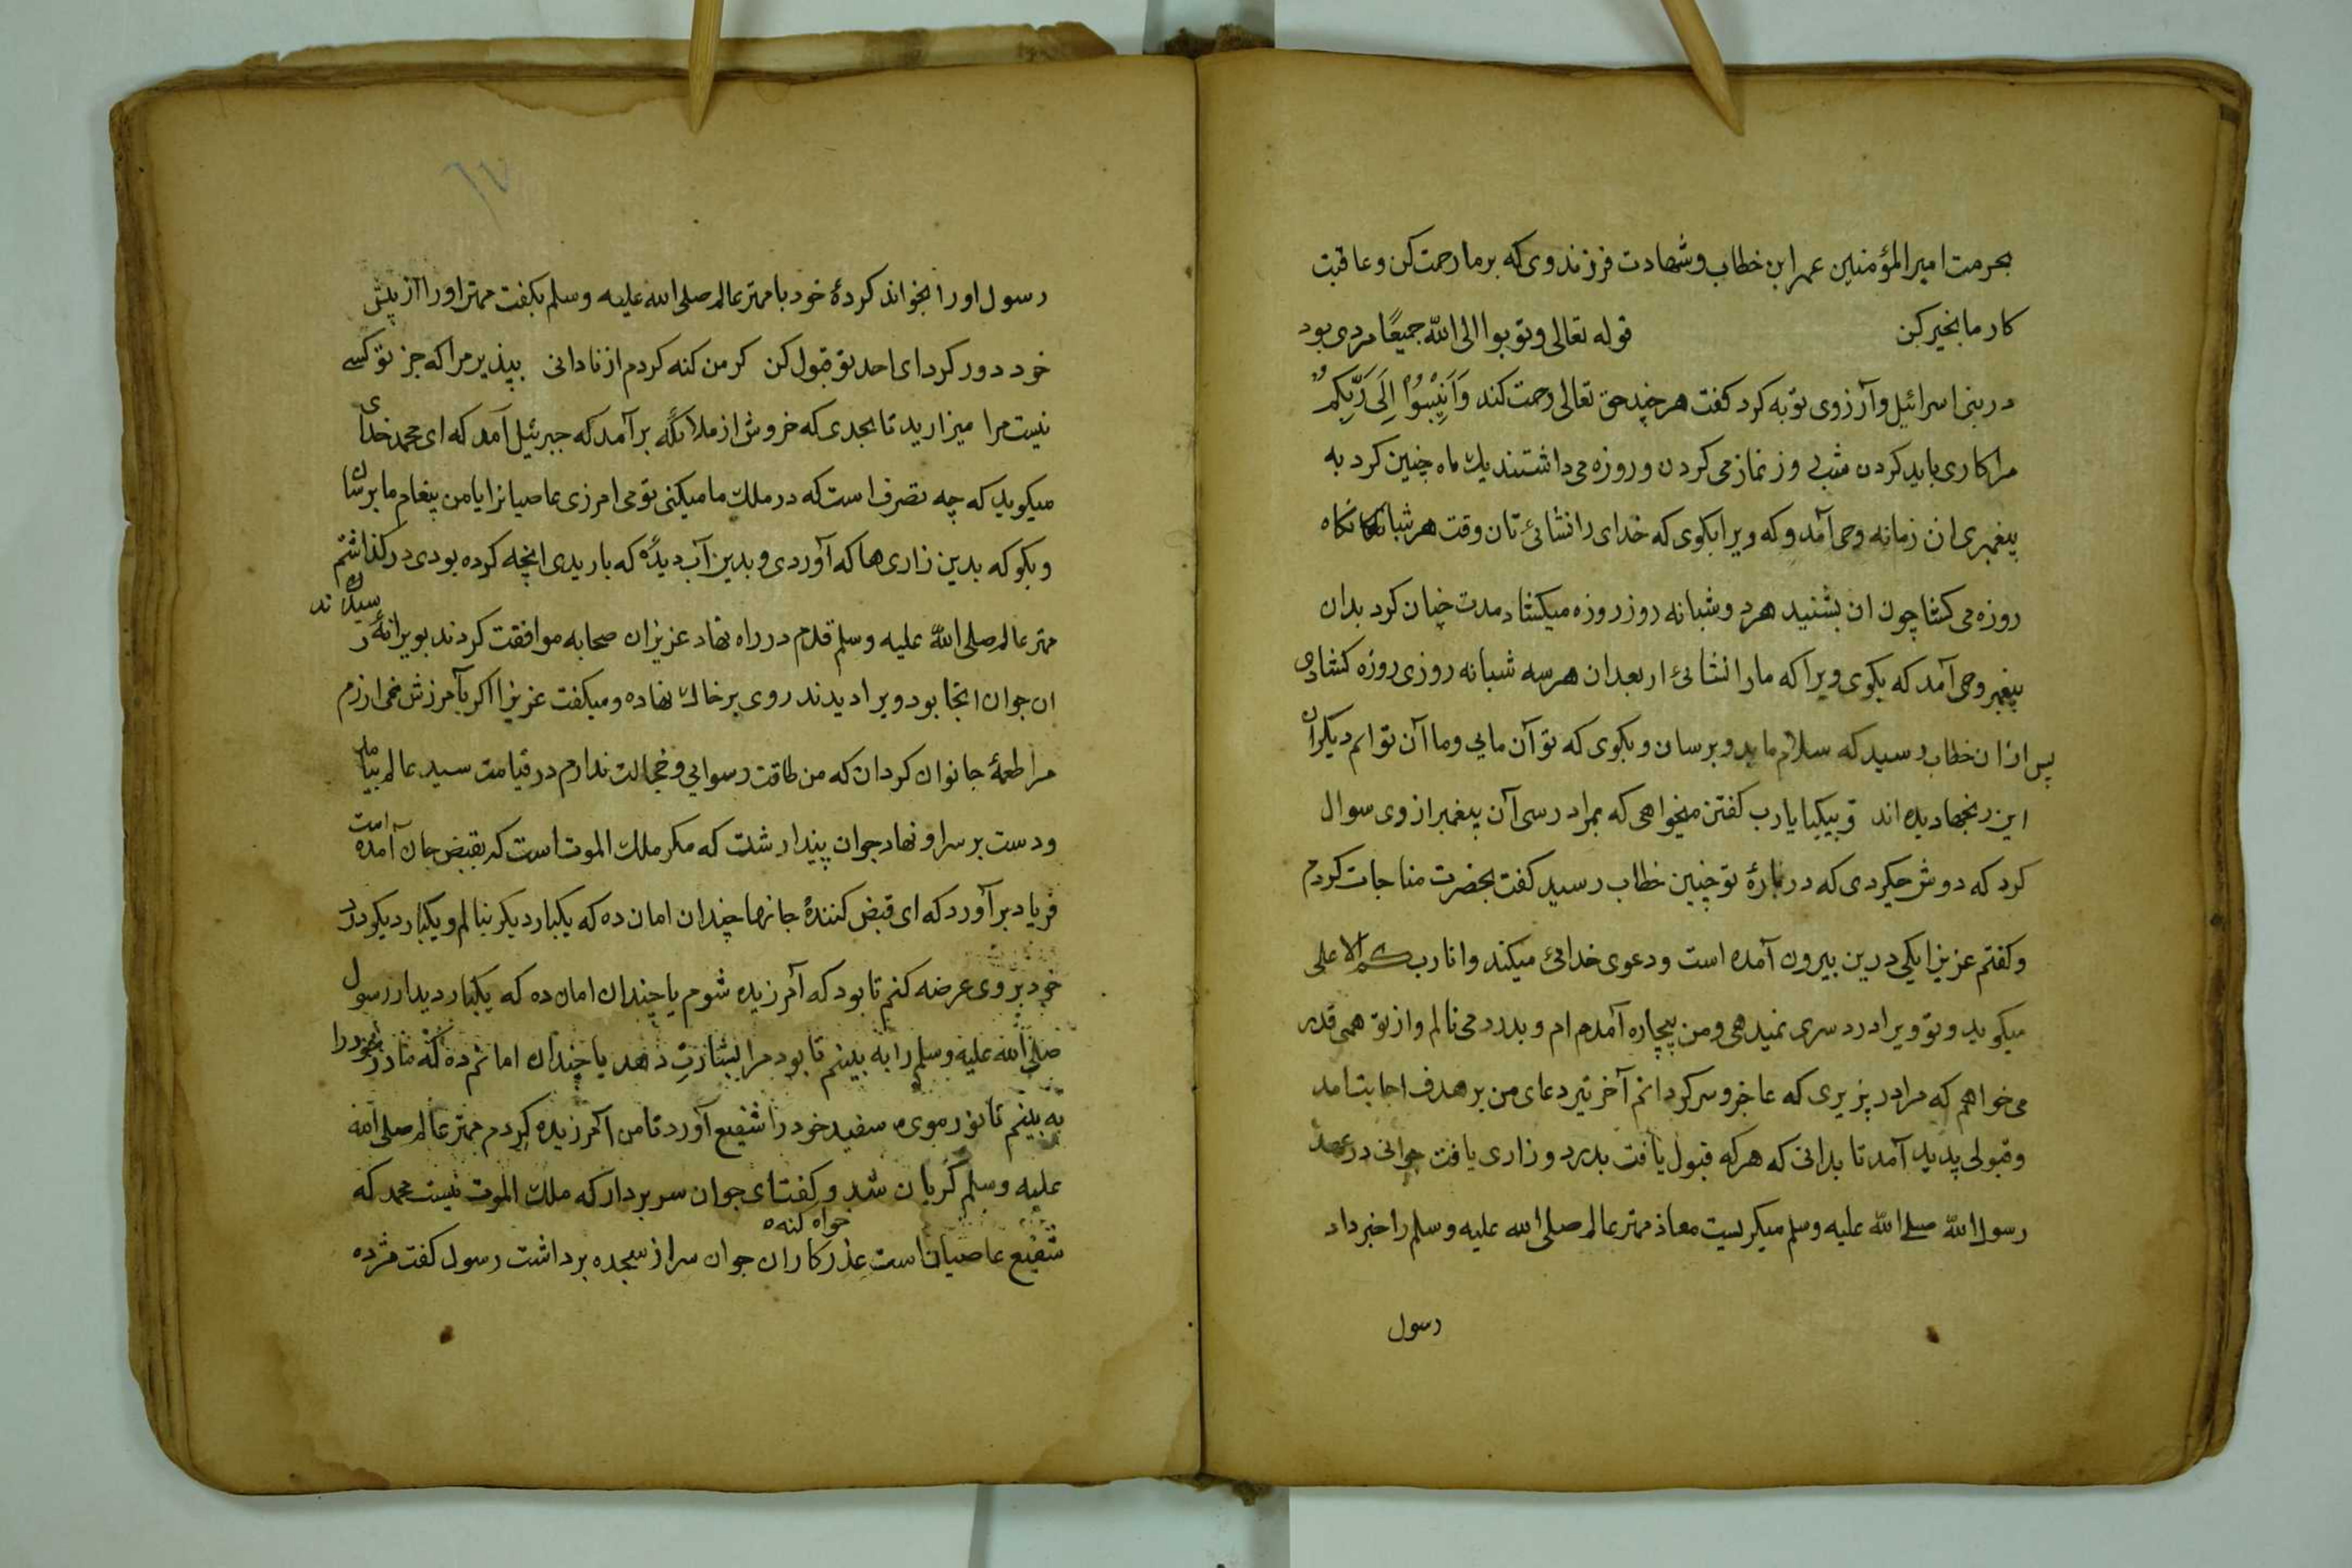 بحرمت امیر المؤمنین عمر ابن خطاب و شهادت فرزند وی که بر ما رحمت کن و عاقبت
کار ما بخیر کن قوله تعالی وتوبوا الی الله جمیعًا مردی بود
در بنی اسرائیل و آرزوی توبه کرد کفت هر چند حق تعالی رحمت کند وَاَنِیْبُوْا اِلَی رَبِّکُمْ
مرا کاری باید کردن شب و روز نماز می کردن و روزه می داشتند یك ماه چنین کرد به
پیغمبری ان زمانه وحی آمد و که ویرا بکوی که خدای را نشائی تا ن وقت هر شبانکاه
روزه می کشا چون ان بشنید هر دو شبانه روز روزه میکشاد مدت چنان کرد بدان
پیغمبر وحی آمد که بکوی ویرا که ما را نشائی از بعد ان هر سه شبانه روزی روزه کشادی
پس ازان خطاب رسید که سلام ما بدو برسان و بکوی که تو آن مایی و ما آن تو ایم دیکران
این رنجها دیده اند تو بیکبا یارب کفتن میخواهی که بمراد رسی آن پیغمبر از وی سوال
کرد که دوش چکردی که در بارهٔ تو چنین خطاب رسید کفت بحضرت مناجات کردم
و کفتم عزیزا یکی درین بیرون آمده است و دعوی خدائی میکند و انا ربکم الاعلی
میکوید و تو ویرا درد سری نمیدهی و من بیچاره آمدم ام و بدرد می نالم و از تو همی قدر
می خواهم که مرا در پزیری که عاجز و سر کردانم آخر تیر دعای من بر هدف اجابت امد
و قبولی پدید آمد تا بدانی که هر که قبول یافت بدرد و زاری یافت جوانی در عهد
رسول الله صلی الله علیه وسلم میکریست معاذ مهتر عالم صلی الله علیه وسلم را خبر داد
رسول
٦٧
رسول اورا بخواند کردهٔ خود با مهتر عالم صلی الله علیه وسلم بکفت مهتر اورا از پیش
خود دور کرد ای احد تو قبول کن کر من کنه کردم از نادانی بپذیر مرا که جز تو کسے
نیست مرا میزارید تا بحدی که خروش از ملائکه بر آمد که جبرئیل آمد که ای محمد خدای
میکوید که چه تصرف است که در ملك ما میکنی تو می امرزی عاصیانرا یا من پیغام ما برسان
و بکو که بدین زاری ها که آوردی و بدین آب دیده که باریدی انچه کرده بودی در کذاشتم
مهتر عالم صلی الله علیه وسلم قدم در راه نهاد عزیزان صحابه موافقت کردند بویرانهٔ رسیدند
ان جوان انجا بود ویرا دیدند روی بر خاك نهاده و میکفت عزیزا اکر بآمرزش نمی ارزم
مرا طعمهٔ جانوان کردان که من طاقت رسوایی و خجالت ندارم در قیامت سید عالم بیامد
و دست بر سر او نهاد جوان پیندار شت که مکر ملك الموت است که بقبض جان آمده است
فریاد بر آورد که ای قبض کنندهٔ جانها چندان امان ده که یکبار دیکر بنالم و یکبار دیکر درد
خود بروی عرضه کنم تا بود که آمرزیده شوم یا چندان امان ده که یکبار دیدار رسول
صلی الله علیه وسلم را به بینم تا بود مرا بشارت دهد یا چندان امانم ده که مادر خود را
به بینم تا نور موی سفید خود را شفیع آورد تا من آمرزیده کردم مهتر عالم صلی الله
علیه وسلم کریان شد و کفت ای جوان سر بردار که ملك الموت نیست محمد که
شفیع عاصیان است عذر خواه کنه کاران جوان سر از سجده برداشت رسول کفت مژده